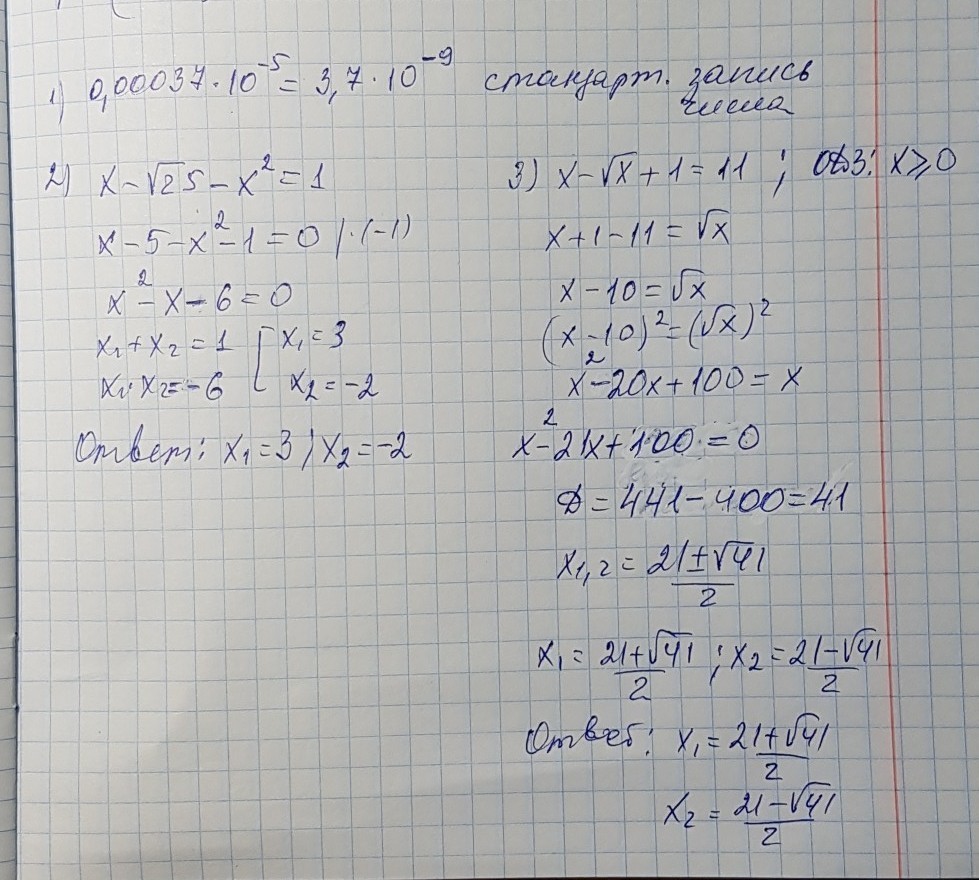 1) 0,00037·10⁻⁵ = 3,7·10⁻⁹ стандарт. запись
числа
2) x - √25 - x² = 1
x - 5 - x² - 1 = 0 |·(-1)
x² - x - 6 = 0
x₁ + x₂ = 1 [ x₁ = 3
x₁·x₂ = -6 [ x₂ = -2
Ответ: x₁ = 3; x₂ = -2
3) x - √x + 1 = 11 ; ОДЗ: x ≥ 0
x + 1 - 11 = √x
x - 10 = √x
(x - 10)² = (√x)²
x² - 20x + 100 = x
x² - 21x + 100 = 0
D = 441 - 400 = 41
x₁,₂ = (21 ± √41)/2
x₁ = (21 + √41)/2 ; x₂ = (21 - √41)/2
Ответ: x₁ = (21 + √41)/2
x₂ = (21 - √41)/2